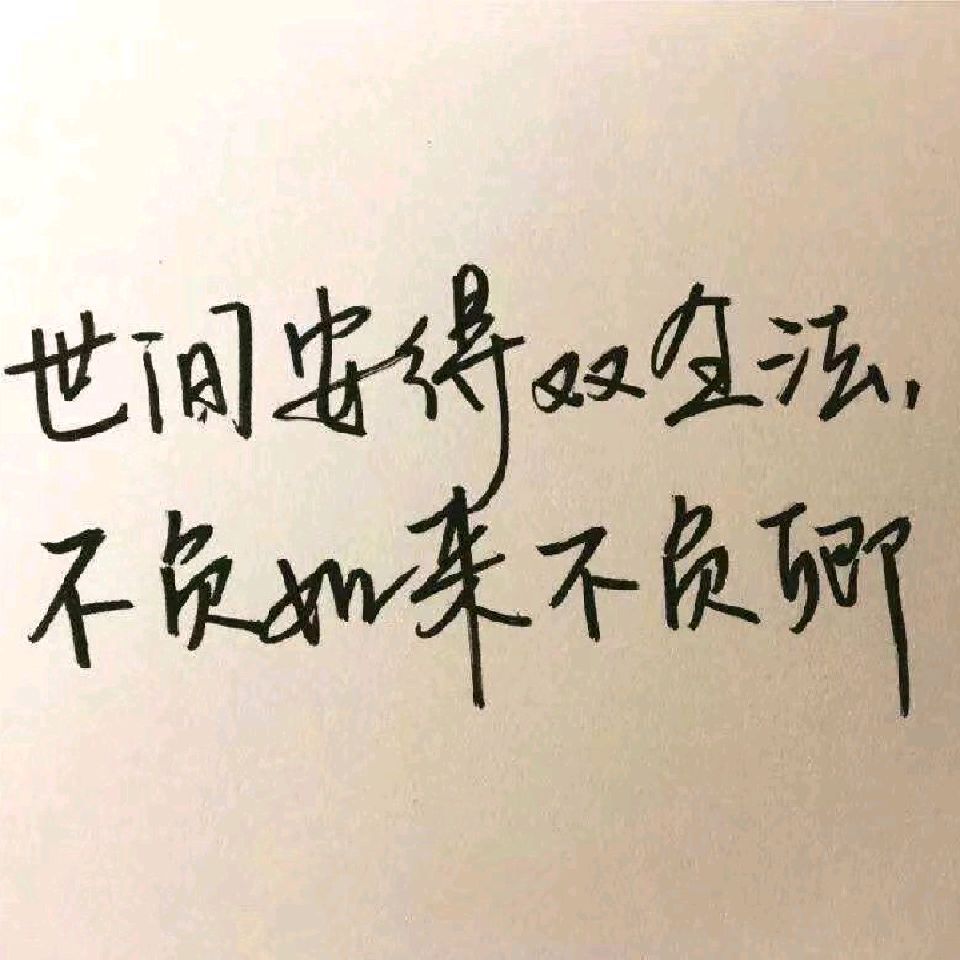 世间安得双全法,
不负如来不负卿